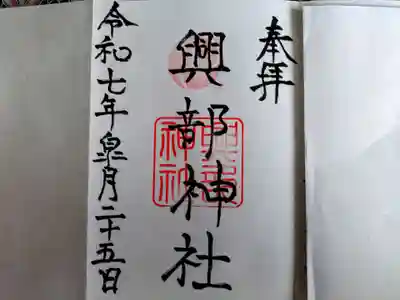 奉拝
興部神社
興部神社
令和七年皐月二十五日